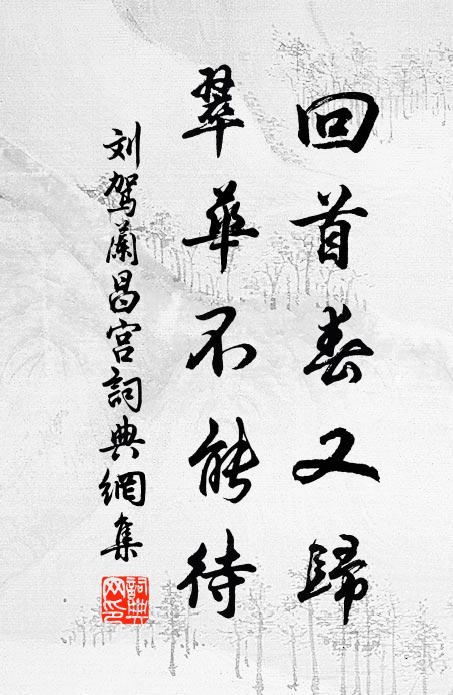 回首春又歸
翠華不能待
刘驾蘭昌宫詞典網集
詞典网印